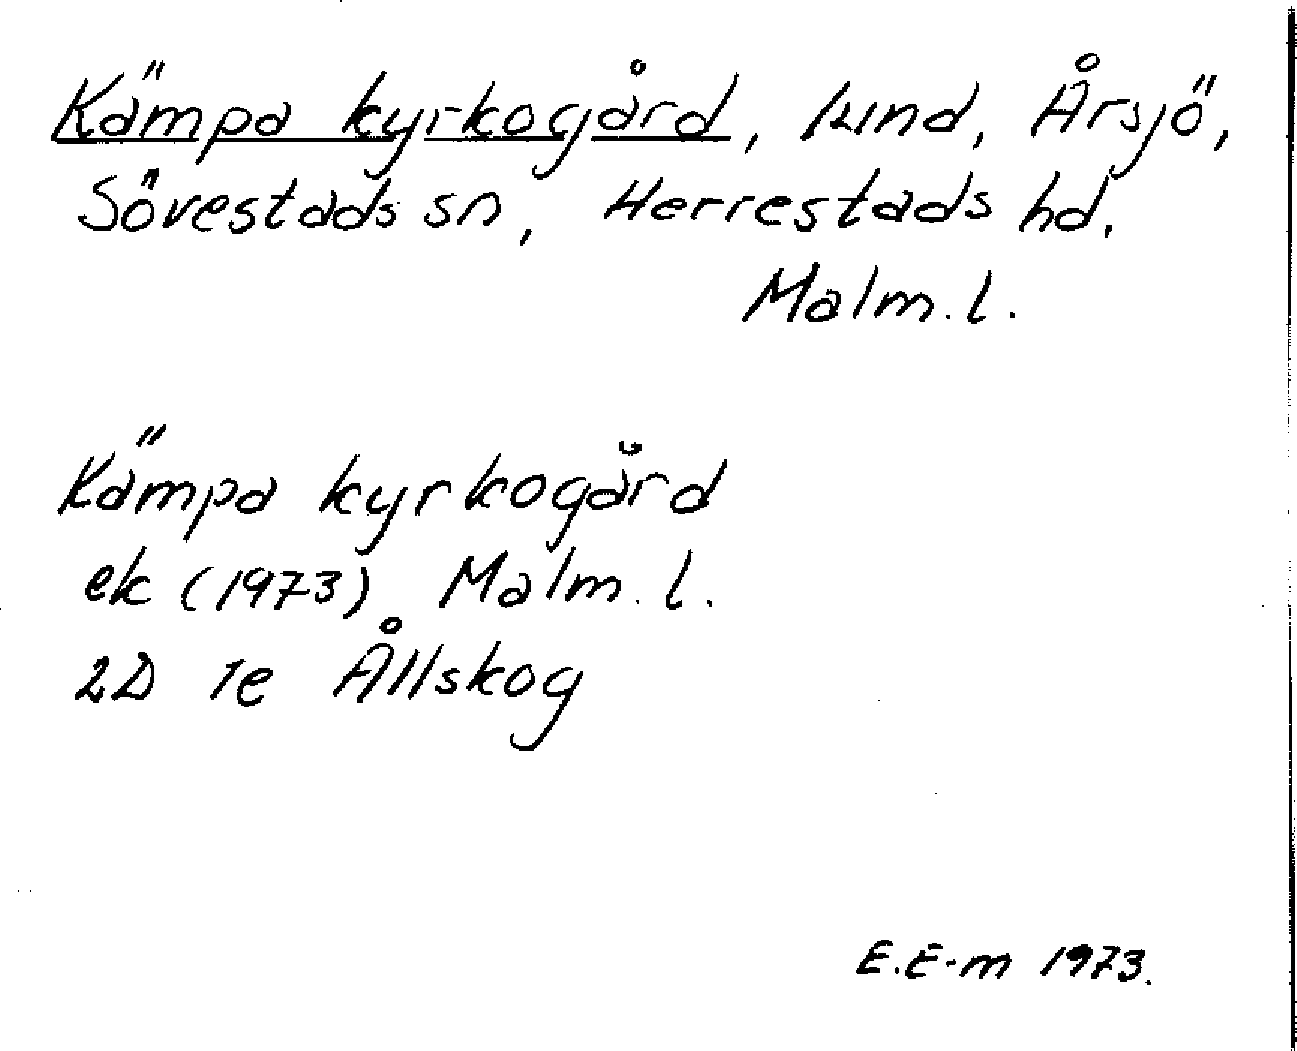 Kämpa kyrkogård, lund, Årsjö,
Sövestads sn, Herrestads hd.
Malm. l.
Kämpa kyrkogård
ek (1973) Malm. l.
2D 1e Ållskog
E.E-m 1973.